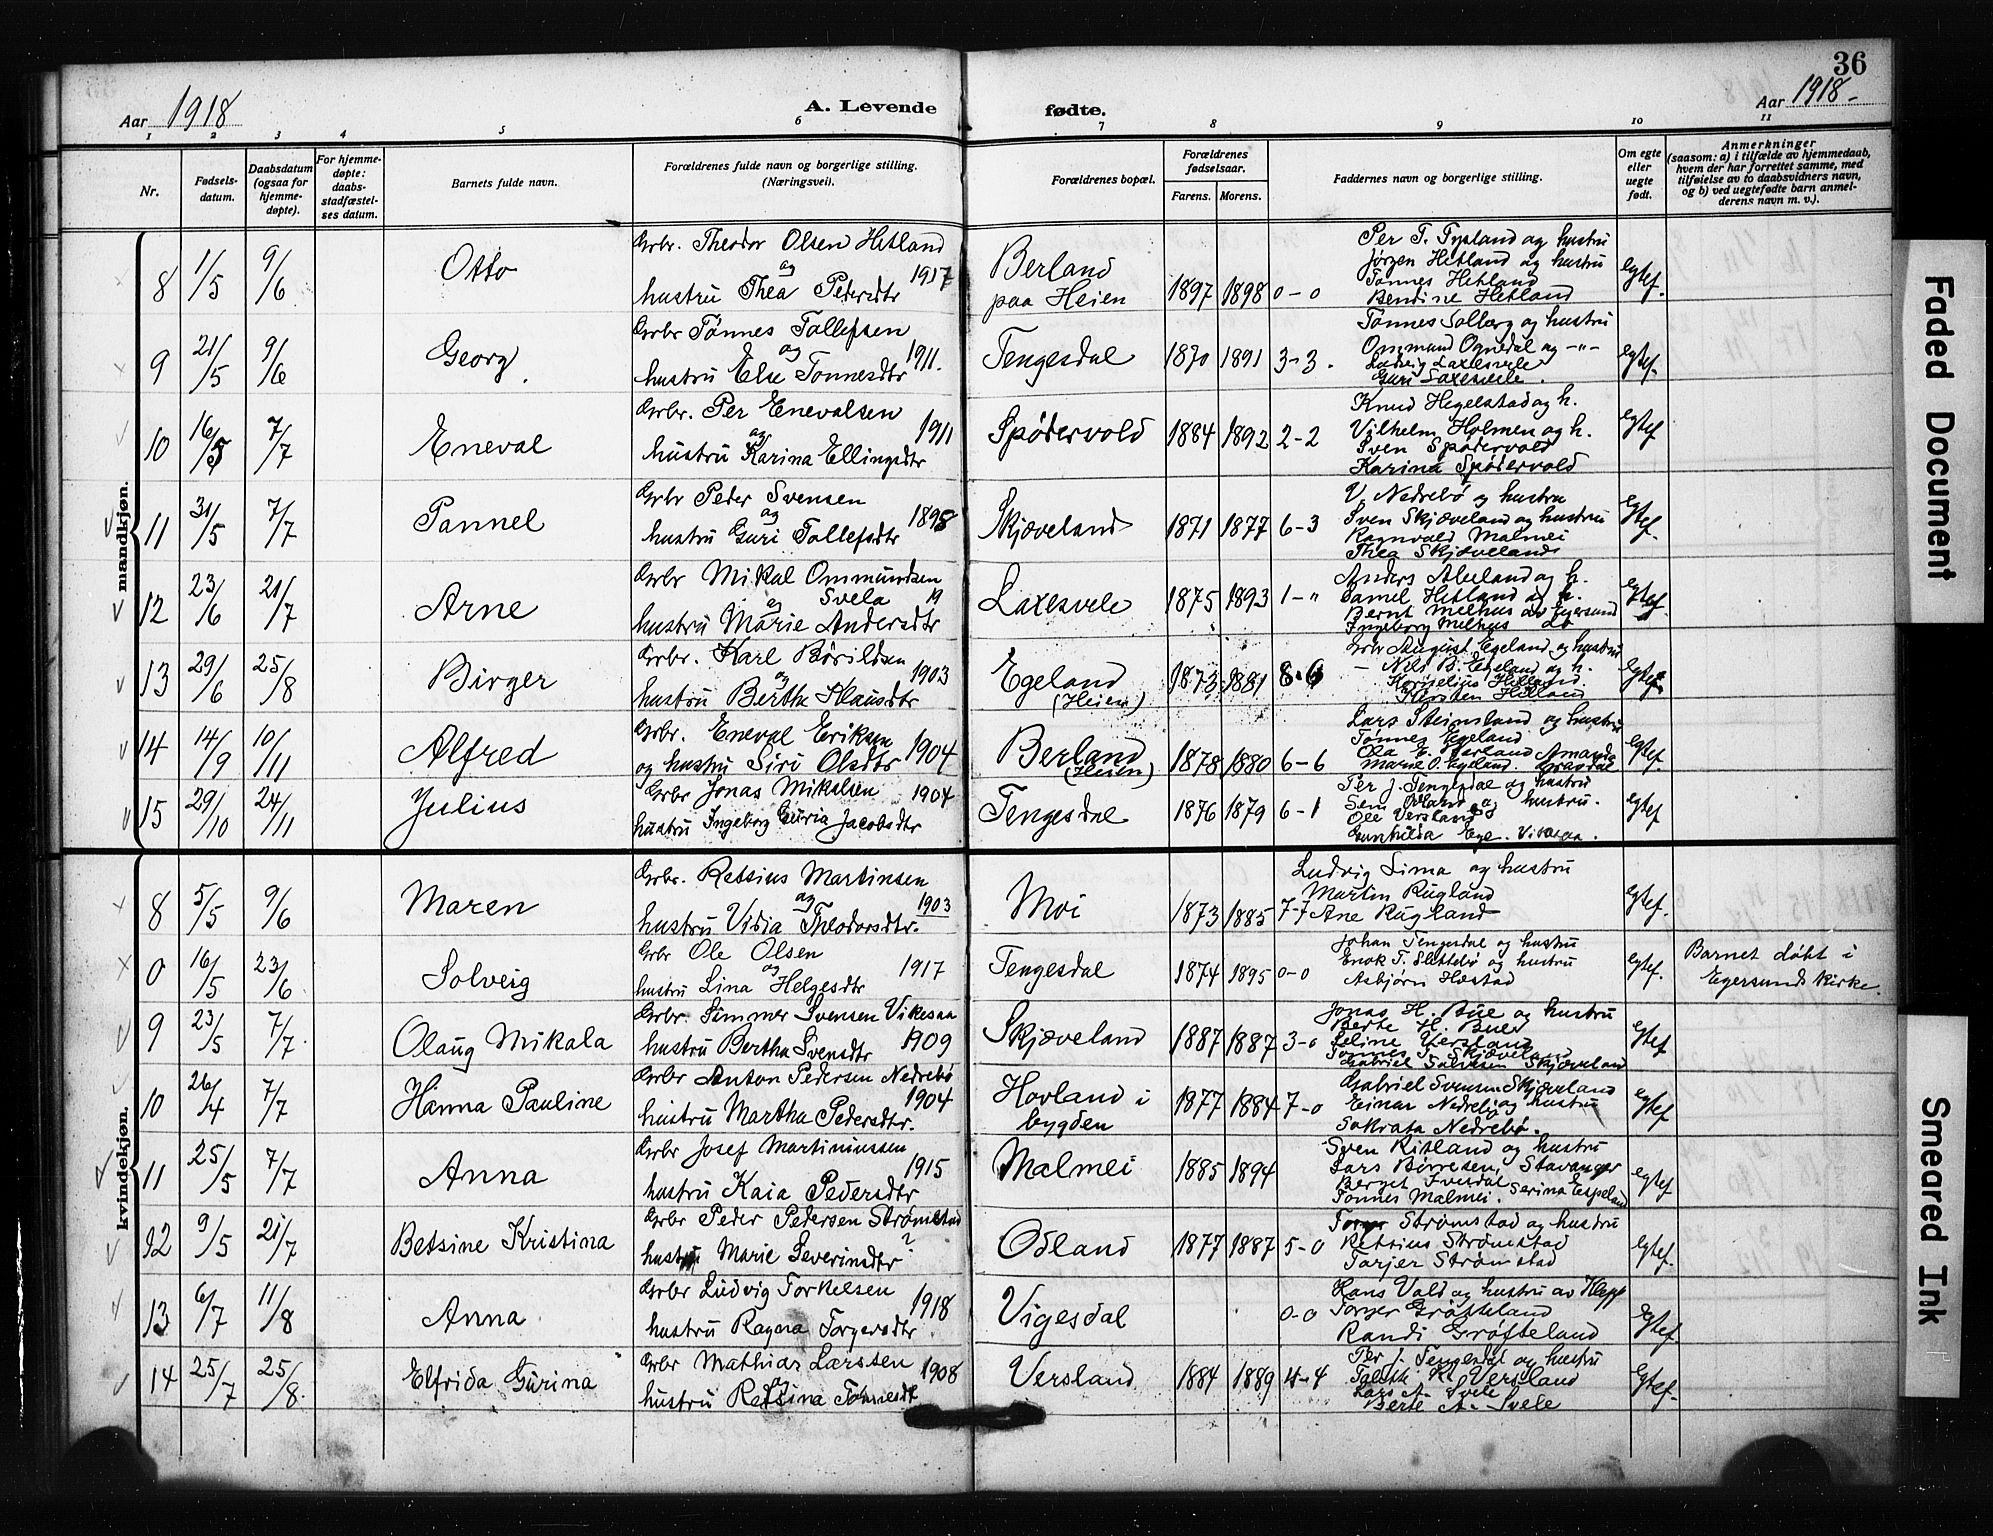 36
Aar 1918
A. Levende fødte.
Aar 1918-
1 2 3 4 5 6 7 8 9 10 11
Nr.
Fødsels-
datum.
Daabsdatum
(ogsaa for
hjemme-
døpte).
For hjemme-
døpte:
daabs-
stadfæstel-
ses datum.
Barnets fulde navn.
Forældrenes fulde navn og borgerlige stilling.
(Næringsvei).
Forældrenes bopæl.
Forældrenes
fødselsaar.
Farens. Morens.
Faddernes navn og borgerlige stilling.
Om egte
eller
uegte
født.
Anmerkninger
(saasom: a) i tilfælde av hjemmedaab,
hvem der har forrettet samme, med
tilføielse av to daabsvidners navn,
og b) ved uegtefødte barn anmel-
derens navn m. v.).
mandkjøn.
8 1/5 9/6 Otto
Grbr. Theodor Olsen Hetland
og 1917
hustru Thea Pedersdtr
Berland
paa Heien
1897 1898 0-0
Per T. Tysland og hustru
Jørgen Hetland og hustru
Tønnes Hetland
Bendine Hetland
Egtef.
9 21/5 9/6 Georg
Grbr Tønnes Tollefsen
og 1911.
hustru Else Tonnesdtr
Tengesdal
1870 1891 3-3.
Tønnes Solberg og hustru
Ommund Ognedal og -"-
Ludvig Laxesvele
Guri Laxesvele.
Egtef.
10 16/5 7/7 Eneval
Grbr. Per Enevalsen
og 1911
hustru Karina Ellingsdtr
Spødervold
1884 1892 2-2
Knud Hegelstad og h.
Vilhelm Holmen og h.
Sven Spødervold
Karina Spødervold
Egtef
11 31/5 7/7 Pannel
Grbr Peder Svensen
og 1898
hustru Guri Tollefsdtr
Skjæveland
1871 1877 6-3
V. Nedrebø og hustru
Sven Skjæveland og hustru
Ragnvald Malmei
Thea Skjæveland
Egtef.
12 23/6 21/7 Arne
Grbr Mikal Ommundsen
og Svela 19
hustru Marie Andersdtr
Laxesvele
1875 1893 1-"
Anders Aluland og h.
Samel Hetland og h.
Bernt Melhus av Egersund
Ingeborg Melhus do
Egtef.
13 29/6 25/8 Birger
Grbr. Karl Børildsen
og 1903
hustru Bertha Klausdtr
Egeland
(Heien)
1873 1881 8-6
Grbr August Egeland og hustru
- Nils B. Egeland og h.
Kornelius Hetland
Kirsten Hetland
Egtef.
14 14/9 10/11 Alfred
Grbr. Eneval Eriksen
og hustru Siri Olsdtr 1904
Berland
(Heien)
1878 1880 6-6
Lars Steinsland og hustru
Tønnes Egeland
Ola E. Berland Amanda
Marie O. Egeland.
Egtef.
15 29/10 24/11 Julius
Grbr Jonas Mikalsen 1904
hustru Ingeborg Guria Jacobsdtr
Tengesdal
1876 1879 6-1
Per J. Tengesdal og hustru
og hustru.
Ole Versland
Gunhilda Ege. Vikesaa.
Egtef
kvindekjøn.
8 5/5 9/6 Maren
Grbr. Retsius Martinsen
og 1903
hustru Vidia Theodorsdtr.
Moi
1873 1885
Ludvig Lima og hustru
Martin Rugland
7-7 Ane Rugland
Egtef.
0 16/5 23/6 Solveig
Grbr Ole Olsen
og 1917
hustru Lina Helgesdtr
Tengesdal
1874 1895 0-0
Johan Tengesdal og hustru
Enok T. Slettebø og hustru
Asbjørn Hæstad
Egtef.
Barnet døbt i
Egersunds kirke.
9 23/5 7/7 Olaug Mikala
Grbr. Simmer Svensen Vikesaa
hustru Bertha Svensdtr 1909
Skjæveland
1887 1887 3-0
Jonas H. Bue og hustru
Berte H. Bue
Seline Versland
Tønnes T. Skjæveland
Gabriel Salvesen Skjæveland
Egtef
10 26/4 7/7 Hanna Pauline
Grbr Anton Pedersen Nedrebø
1904
hustru Martha Pedersdtr.
Hovland i
bygden
1877 1884 7-0
Gabriel Svensen Skjæveland
Einar Nedrebø og hustru
Sokrata Nedrebø.
Egtef
11 25/5 7/7 Anna
Grbr Josef Martiniussen
1915
hustru Kaia Pedersdtr
Malmei
1885 1894
Sven Ritland og hustru
Lars Børresen, Stavanger
Berget Ivesdal
Tønnes Malmei. Serina Espeland
Egtef
12 9/5 21/7 Betsine Kristina
Grbr Peder Pedersen Strømstad
hustru Marie Severinsdtr ?
Odland
1877 1887 5-0
Torger Strømstad og hustru
Retsius Strømstad
Torjer Strømstad
Egtef.
13 6/7 11/8 Anna
Grbr Ludvig Torkelsen
1918
hustru Ragna Torgersdtr
Vigesdal
0-0
Hans Vold og hustru av Klepp
Torger Grøfteland
Randi Grøfteland
Egtef.
14 25/7 25/8. Elfrida Gurina
Grbr Mathias Larssen 1908
og
hustru Retsina Tønnesdt
Versland
1884 1889 4-4
Per J. Tengesdal og hustru
Kl. Versland
Lars A. Svele
Berte A. Svele
Egtef.
Faded Document
Smeared Ink